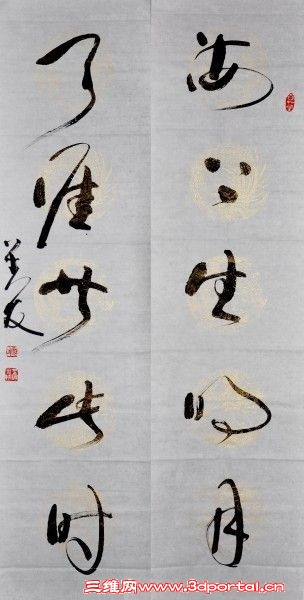 海上生明月
天涯共此时
三维网www.3dportal.cn